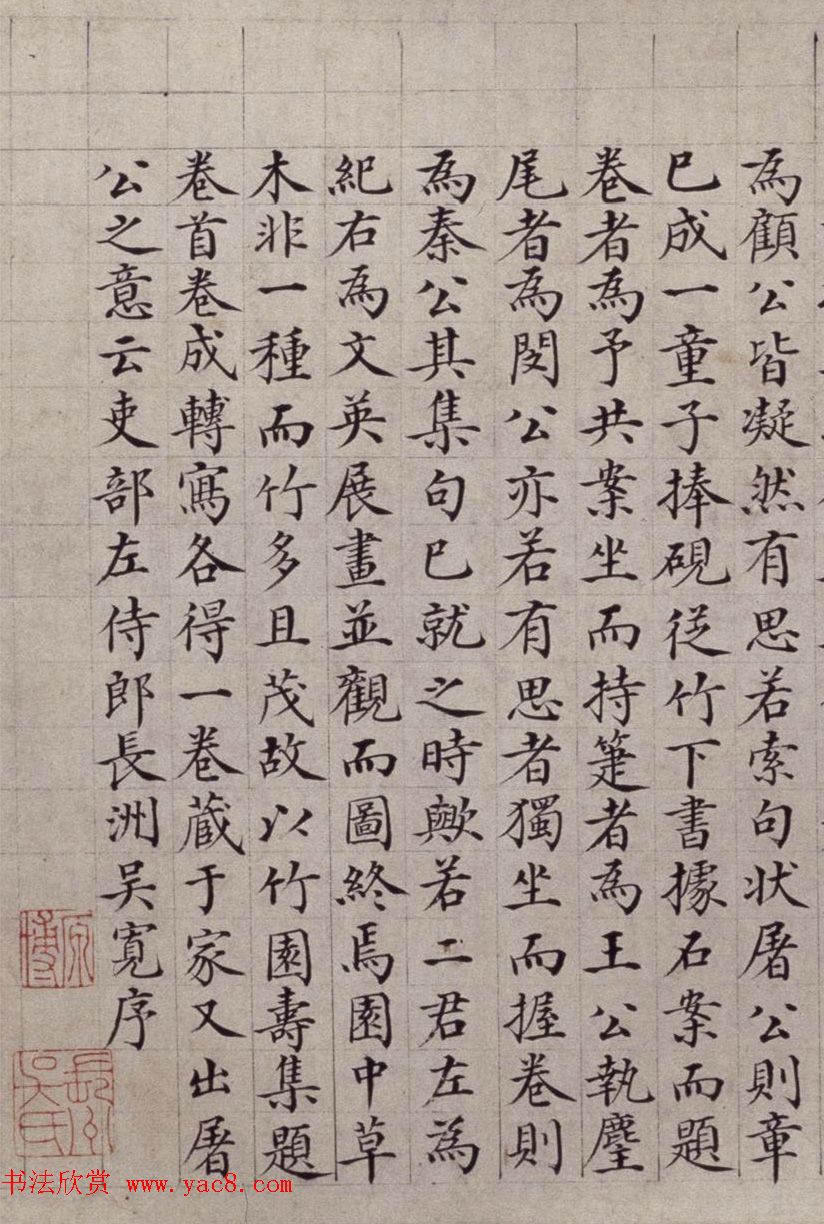 為顧公皆凝然有思若索句状屠公則章
已成一童子捧硯従竹下書據石案而題
卷者為予共案坐而持箑者為王公執麈
尾者為閔公亦若有思者獨坐而握卷則
為秦公其集句已就之時歟若二君左為
紀右為文英展畫並觀而圖終焉園中草
木非一種而竹多且茂故以竹園壽集題
卷首卷成轉寫各得一卷蔵于家又出屠
公之意云吏部左侍郎長洲吳寛序
原博
長州吳氏
书法欣赏 www.yac8.com